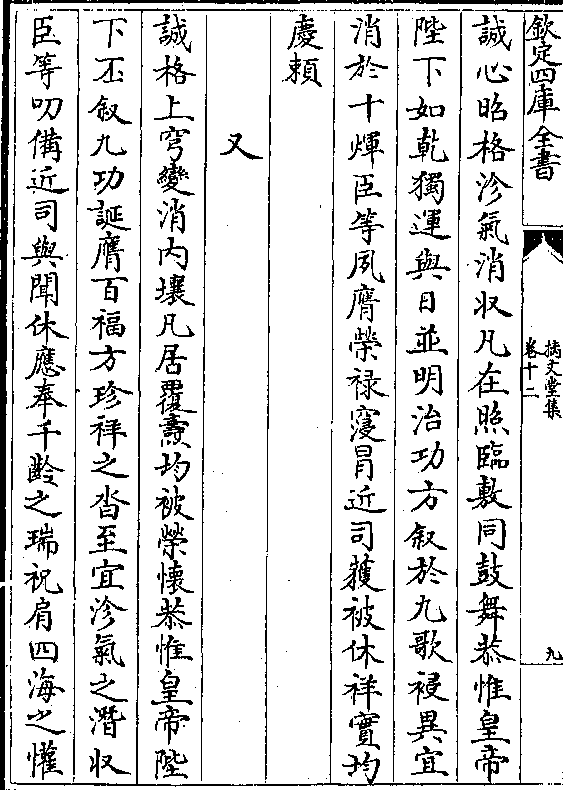 欽定四庫全書
摛文堂集
卷十二
九
誠心昭格沴氣消收凡在照臨敷同鼓舞恭惟皇帝
陛下如乾獨運與日並明治功方叙於九歌祲異宜
消於十煇臣等夙膺榮禄寖冒近司獲被休祥實均
慶頼
又
誠格上穹變消内壤凡居覆燾均被榮懐恭惟皇帝陛
下丕叙九功誕膺百福方珍祥之沓至宜沴氣之潛收
臣等叨備近司與聞休應奉千齡之瑞祝肩四海之懽